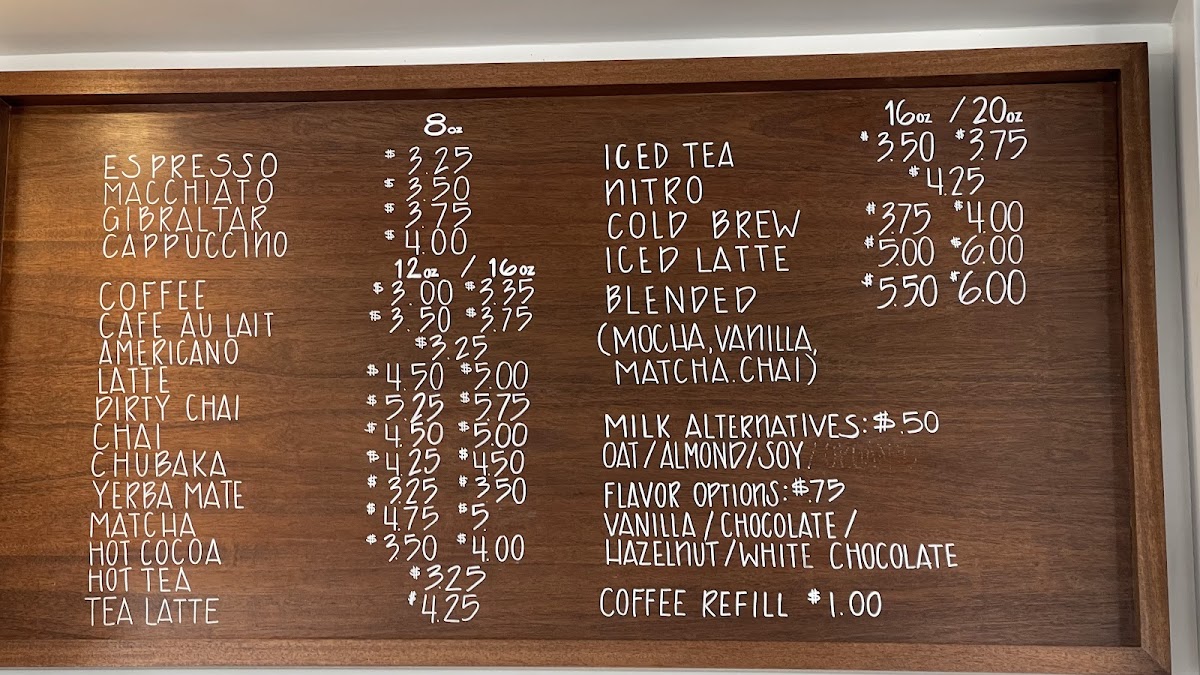 8oz
ESPRESSO $3.25
MACCHIATO $3.50
GIBRALTAR $3.75
CAPPUCCINO $4.00
12oz / 16oz
COFFEE $3.00 $3.35
CAFE AU LAIT $3.50 $3.75
AMERICANO $3.25
LATTE $4.50 $5.00
DIRTY CHAI $5.25 $5.75
CHAI $4.50 $5.00
CHUBAKA $4.25 $4.50
YERBA MATE $3.25 $3.50
MATCHA $4.75 $5.
HOT COCOA $3.50 $4.00
HOT TEA $3.25
TEA LATTE $4.25
16oz / 20oz
ICED TEA $3.50 $3.75
NITRO $4.25
COLD BREW $3.75 $4.00
ICED LATTE $5.00 $6.00
BLENDED $5.50 $6.00
(MOCHA, VANILLA,
MATCHA. CHAI)
MILK ALTERNATIVES: $.50
OAT/ALMOND/SOY
FLAVOR OPTIONS: $.75
VANILLA/CHOCOLATE/
HAZELNUT/WHITE CHOCOLATE
COFFEE REFILL $1.00